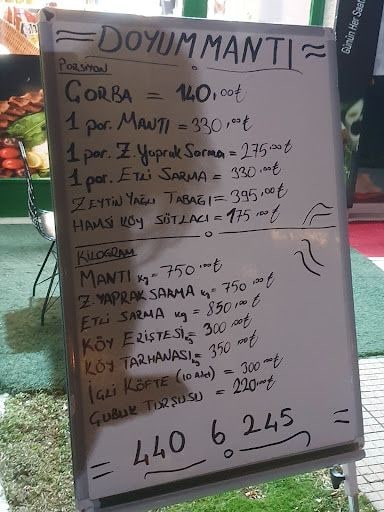 = DOYUM MANTI =
PORSİYON
ÇORBA = 140,00₺
1 por. MANTI = 330,00₺
1 por. Z. Yaprak Sarma = 275,00₺
1 por. ETLİ SARMA = 330,00₺
ZEYTİNYAĞLI TABAĞI = 395,00₺
HAMSİ KÖY SÜTLACI = 175,00₺
KİLOGRAM
MANTI kg = 750,00₺
Z. YAPRAK SARMA kg = 750,00₺
ETLİ SARMA kg = 850,00₺
KÖY ERİŞTESİ kg = 300,00₺
KÖY TARHANASI kg = 350,00₺
İÇLİ KÖFTE (10 Adet) = 300,00₺
ÇUBUK TURŞUSU = 220,00₺
= 440 6 245 =
Günün Her Saati